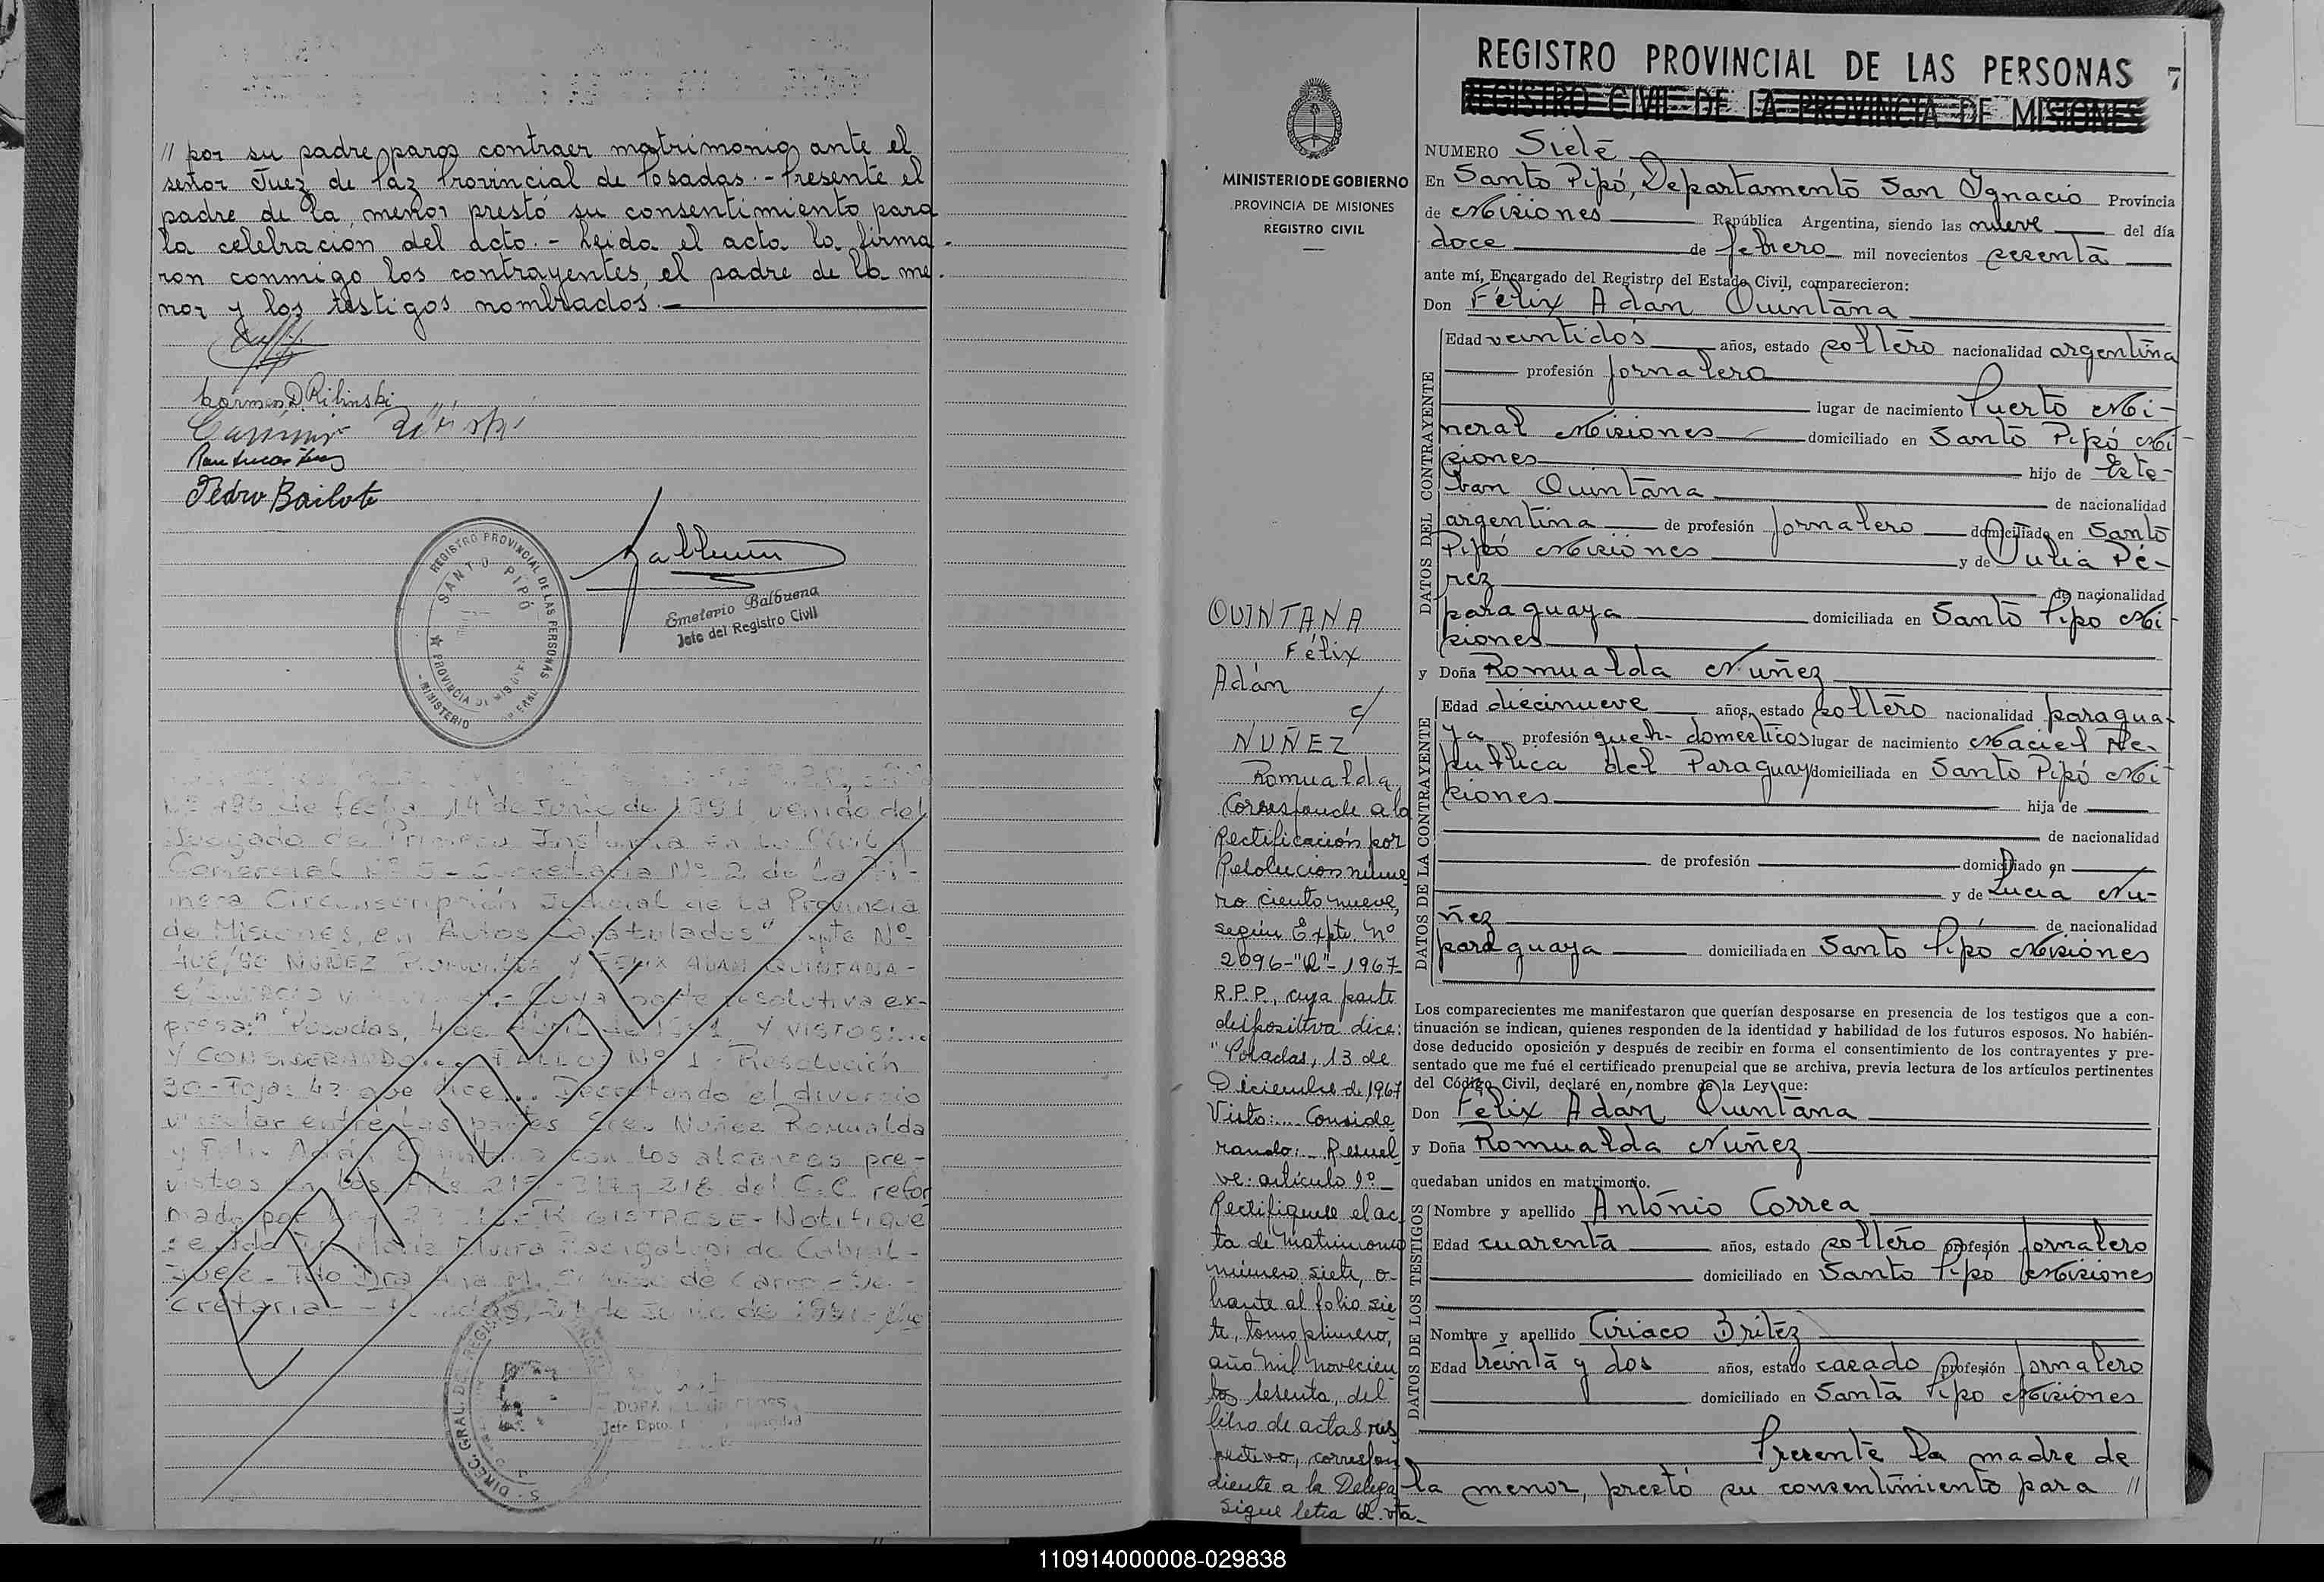 // por su padre para contraer matrimonio ante el
señor Juez de Paz Provincial de Posadas.- Presente el
padre de la menor prestó su consentimiento para
la celebración del acto.- Leida el acta la firma-
ron conmigo los contrayentes, el padre de la me-
nor y los testigos nombrados.-
Pedro Bailote
REGISTRO PROVINCIAL DE LAS PERSONAS
SANTO PIPÓ
PROVINCIA DE MISIONES
MINISTERIO
Emeterio Balbuena
Jefe del Registro Civil
de fecha 14 de Junio de 1991 venido del
Juzgado de Primera Instancia en lo Civil y
Comercial Nº 5 - Secretaria Nº 2 de la Pri-
mera Circunscripción Judicial de la Provincia
de Misiones, en Autos Caratulados" Expte Nº
NUÑEZ Romualda Y FELIX ADAN QUINTANA-
Cuya parte resolutiva ex-
presa:" Posadas, 4 de Abril de 1991 Y VISTOS:...
Y CONSIDERANDO... FALLO: Nº 1 Resolución
30-Fojas 42 que dice... Decretando el divorcio
vincular entre las partes Sres Nuñez Romualda
y Felix Adán Quintana con los alcances pre-
vistos en los Art's 215-217 y 218 del C.C. refor
mado por Ley REGISTRESE - Notifique
se. Fdo Dra María Elvira Bacigalupi de Cabral-
Juez - Fdo Dra Ana M. de Carro - Se-
cretaria - Posadas, 21 de Junio de 1991
ERROSE
7
REGISTRO PROVINCIAL DE LAS PERSONAS
REGISTRO CIVIL DE LA PROVINCIA DE MISIONES
MINISTERIO DE GOBIERNO
PROVINCIA DE MISIONES
REGISTRO CIVIL
QUINTANA
Félix
Adán
c/
NUÑEZ
Romualda
Corresponde a la
Rectificación por
Resolución núme
ro ciento nueve,
según Expte. Nº
2096-"Q"-1967
R.P.P., cuya parte
dispositiva dice:
"Posadas, 13 de
Diciembre de 1967
Visto:... Conside
rando:... Resuel
ve: artículo 1º-
Rectifiquese el ac
ta de Matrimonio
número siete, o-
brante al folio sie
te, tomo primero,
año mil novecien
tos sesenta, del
libro de actas res
pectivo, correspon
diente a la Delega
Sigue letra Q. vta-
NUMERO Siete
En Santo Pipó, Departamento San Ignacio Provincia
de Misiones República Argentina, siendo las nueve del día
doce de febrero mil novecientos sesenta
ante mí, Encargado del Registro del Estado Civil, comparecieron:
Don Félix Adan Quintana
DATOS DEL CONTRAYENTE
Edad veintidos años, estado soltero nacionalidad argentina
profesión jornalero
lugar de nacimiento Puerto Mi-
neral Misiones domiciliado en Santo Pipó Mi
siones hijo de Este-
ban Quintana de nacionalidad
argentina de profesión jornalero domiciliado en Santo
Pipó Misiones y de Julia Pé-
rez de nacionalidad
paraguaya domiciliada en Santo Pipó Mi
siones
y Doña Romualda Nuñez
DATOS DE LA CONTRAYENTE
Edad diecinueve años, estado soltero nacionalidad paragua-
ya profesión queh- domesticos lugar de nacimiento Maciel Re-
publica del Paraguay domiciliada en Santo Pipó Mi
siones hija de
de nacionalidad
de profesión domiciliado en
y de Lucia Nu-
ñez de nacionalidad
paraguaya domiciliada en Santo Pipó Misiones
Los comparecientes me manifestaron que querían desposarse en presencia de los testigos que a con-
tinuación se indican, quienes responden de la identidad y habilidad de los futuros esposos. No habién-
dose deducido oposición y después de recibir en forma el consentimiento de los contrayentes y pre-
sentado que me fué el certificado prenupcial que se archiva, previa lectura de los artículos pertinentes
del Código Civil, declaré en nombre de la Ley que:
Don Félix Adán Quintana
y Doña Romualda Nuñez
quedaban unidos en matrimonio.
DATOS DE LOS TESTIGOS
Nombre y apellido António Correa
Edad cuarenta años, estado soltero profesión jornalero
domiciliado en Santo Pipó Misiones
Nombre y apellido Ciriaco Britez
Edad treinta y dos años, estado casado profesión jornalero
domiciliado en Santa Pipó Misiones
Presente la madre de
la menor, prestó su consentimiento para //
110914000008-029838